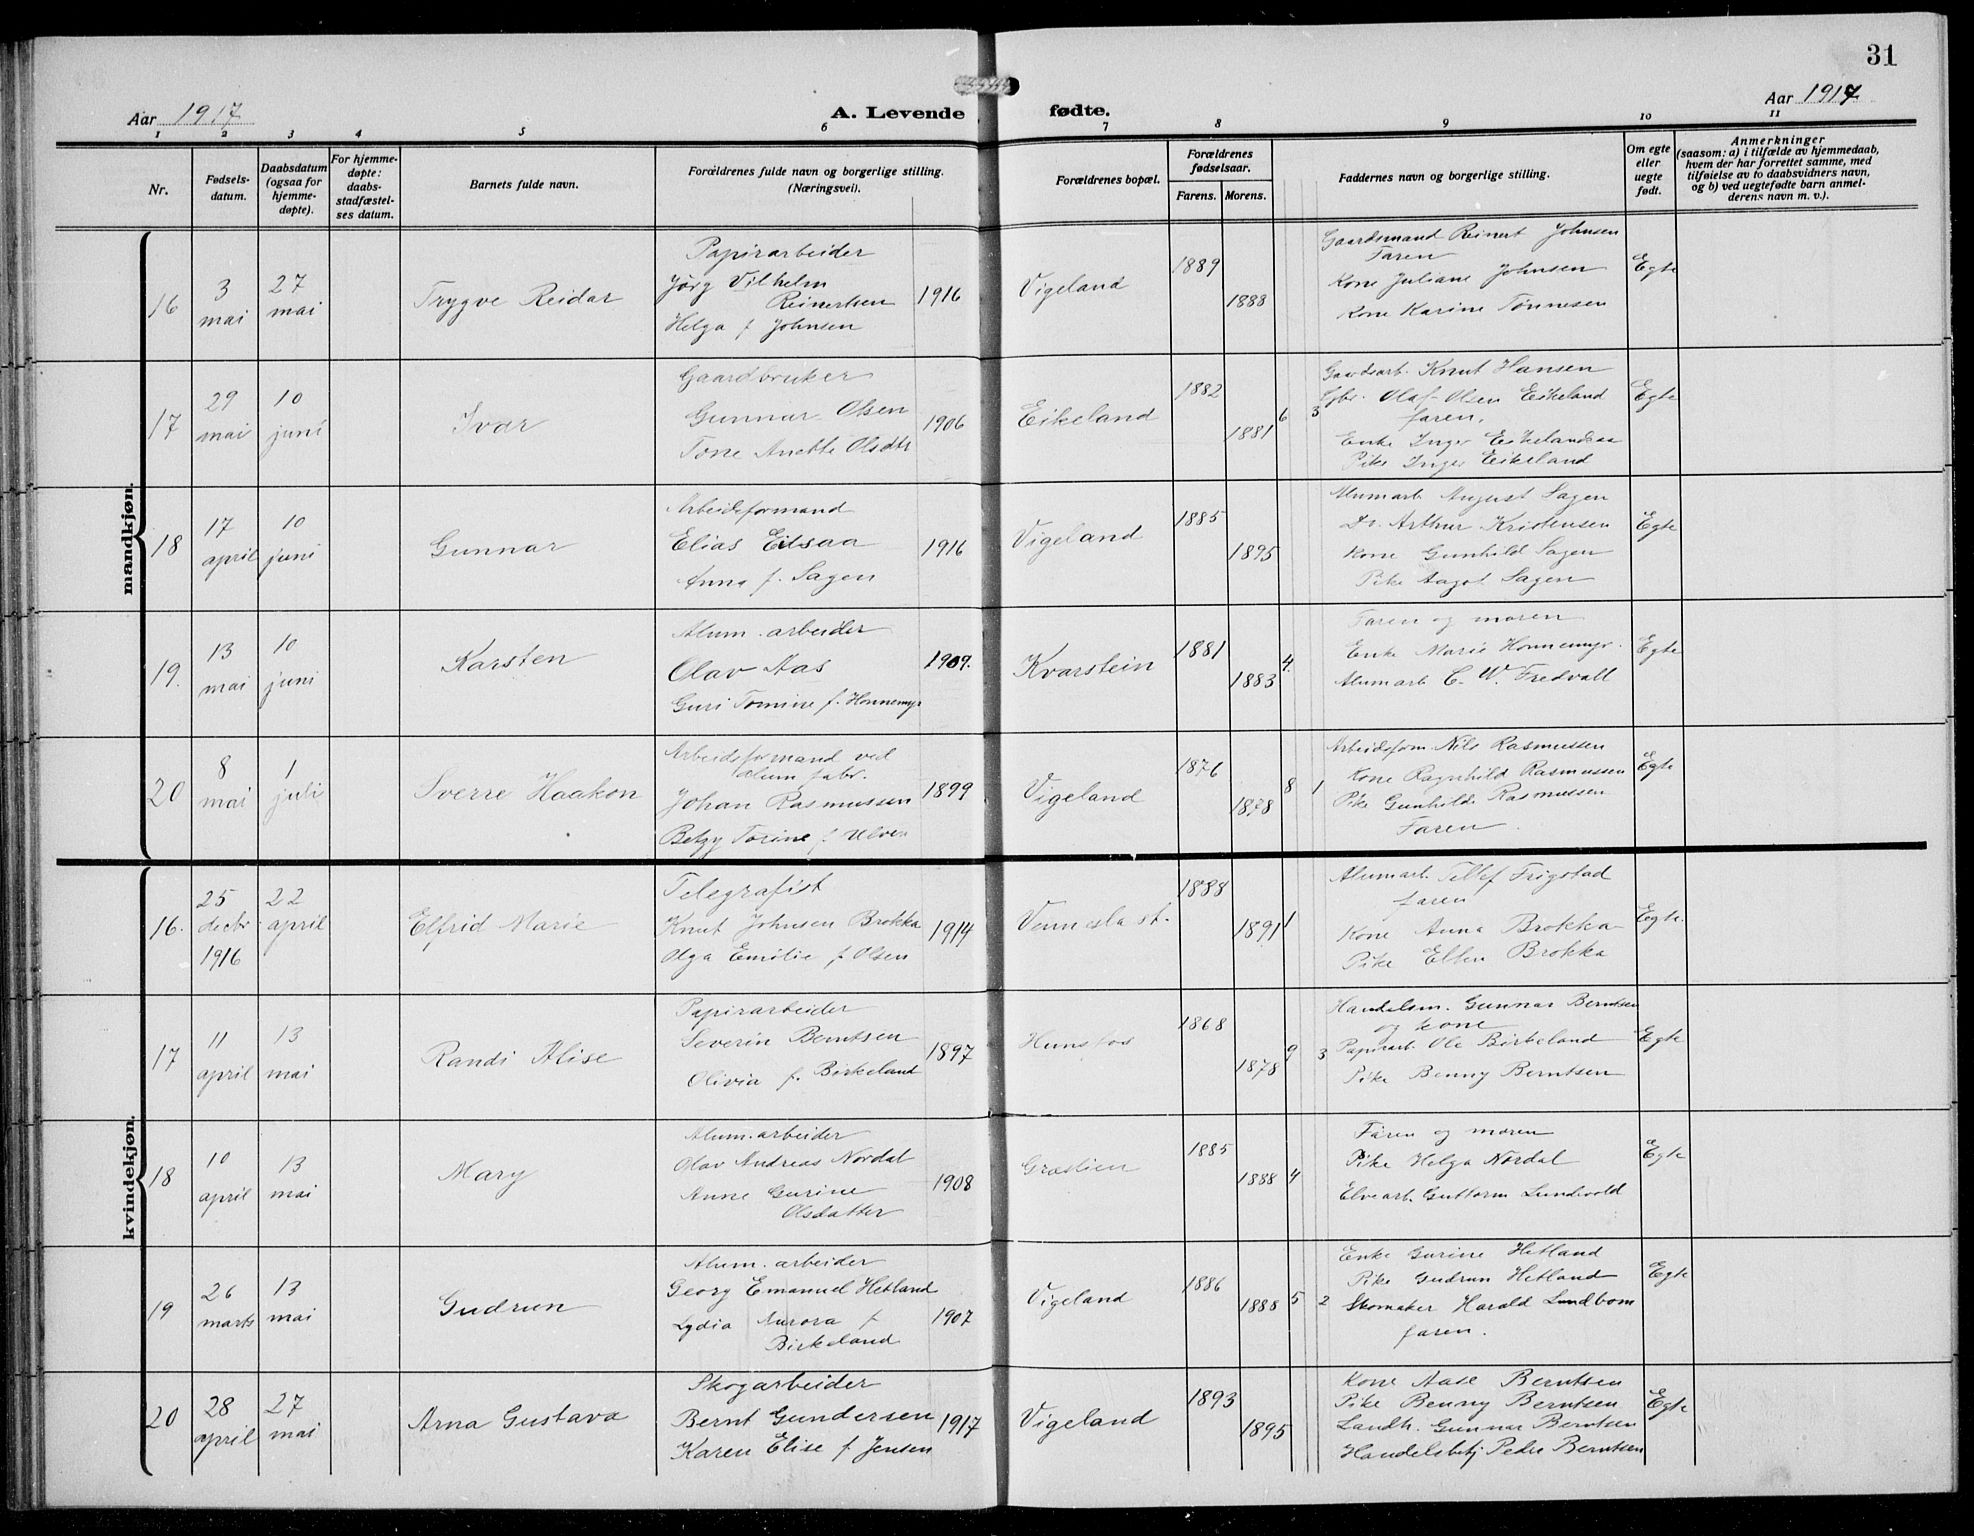 31
Aar 1917
A. Levende fødte.
Aar 1917
1 2 3 4 5 6 7 8 9 10 11
Nr.
Fødsels-
datum.
Daabsdatum
(ogsaa for
hjemme-
døpte).
For hjemme-
døpte:
daabs-
stadfæstel-
ses datum.
Barnets fulde navn.
Forældrenes fulde navn og borgerlige stilling.
(Næringsvei).
Forældrenes bopæl.
Forældrenes
fødselsaar.
Farens. Morens.
Faddernes navn og borgerlige stilling.
Om egte
eller
uegte
født.
Anmerkninger
(saasom: a) i tilfælde av hjemmedaab,
hvem der har forrettet samme, med
tilføielse av to daabsvidners navn,
og b) ved uegtefødte barn anmel-
derens navn m. v.).
mandkjøn.
16
3
mai
27
mai
Trygve Reidar
Papirarbeider
Jörg Vilhelm
Reinertsen
Helga f. Johnsen
1916
Vigeland
1889
1888
Gaardsmand Reinert Johnsen
Faren
Kone Juliane Johnsen
Kone Karine Tønnesen
Egte
17
29
mai
10
juni
Ivar
Gaardbruker
Gunnar Olsen
Tone Anette Olsdtr
1906
Eikeland
1882
1881
6 3
Gaardsarb. Knut Hansen
Gbr. Olaf Olsen Eikeland
faren.
Enke Inger Eikelandsaa
Pike Inger Eikeland
Egte
18
17
april
10
juni
Gunnar
Arbeidsformand
Elias Eitsaa
Anna f. Sagen
1916
Vigeland
1885
1895
Alumarb. August Sagen
Do. Arthur Kristensen
Kone Gunhild Sagen
Pike Aagot Sagen
Egte
19.
13
mai
10
juni
Karsten
Alum. arbeider
Olav Aas
Guri Tomine f. Honnemyr
1909.
Kvarstein
1881
1883
4.
Faren og moren
Enke Marie Honnemyr.
Alumarb. C. W. Fredvall
Egte
20
8
mai
1
juli
Sverre Haakon
Arbeidsformand ved
alum fabr.
Johan Rasmussen
Betzy Torine f. Ulven
1899
Vigeland
1876
1878
8 1
Arbeidsform. Nils Rasmussen
Kone Ragnhild Rasmussen
Pike Gunhilde Rasmussen
Faren.
Egte
kvindekjøn.
16.
25
decbr
1916
22
april
Elfrid Marie
Telegrafist
Knut Johnsen Brokka
Olga Emilie f. Olsen
1914
Vennesla st.
1888
1891
1
Alumarb. Tellef Frigstad
faren
Kone Anna Brokka
Pike Ellen Brokka
Egte.
17
11
april
13
mai
Randi Alise
Papirarbeider
Severin Berntsen
Olivia f. Birkeland
1897
Hunsfos
1868
1878
9 3
Handelsm. Gunnar Berntsen
og kone
Papirarb. Ole Birkeland
Pike Benny Berntsen
Egte
18
10
april
13
mai
Mary
Alum. arbeider
Olav Andreas Nordal
Anne Gurine
Olsdatter
1908
Græslien
1885
1888
4
Faren og moren
Pike Helga Nordal
Elvearb. Guttorm Lundevold
Egte
19
26
marts
13
mai
Gudrun
Alum. arbeider
Georg Emanuel Hetland
Lydia Aurora f.
Birkeland
1907
Vigeland
1886
1888
5 2
Enke Gurine Hetland
Pike Gudrun Hetland
Skomaker Harald Lundbom
faren.
Egte
20
28
april
27
mai
Arna Gustava
Skogarbeider
Bernt Gundersen
Karen Elise f. Jensen
1917
Vigeland
1893
1895
Kone Aase Berntsen
Pike Benny Berntsen
Landh. Gunnar Berntsen
Handelsbetj Peder Berntsen
Egte